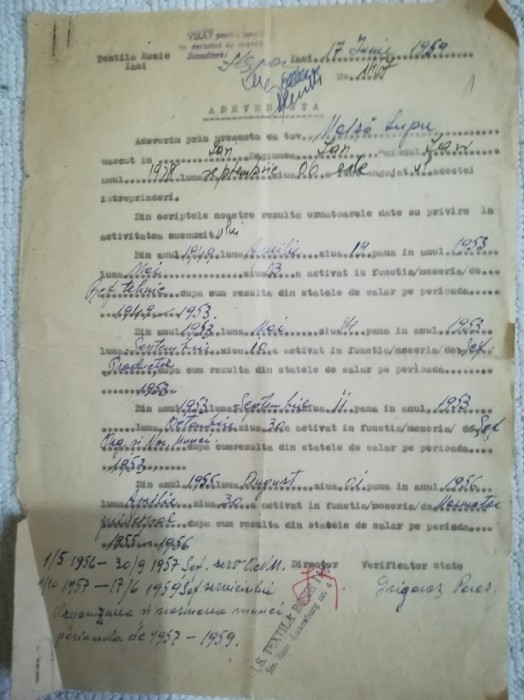 VIZAT pentru
Textila Rosie Iasi 17 Iunie 1959
Iasi No.
ADEVERINTA
Adeverim prin prezenta ca tov. Lupu
nascut in Iasi Regiunea Iasi
anul 1928 septembrie 06 este angajatul acestei
intreprinderi.
Din scriptele noastre rezulta urmatoarele date cu privire la
activitatea susnumitului
Din anul 1949 luna Aprilie ziua 19 pana in anul 1953
luna Mai ziua 23 a activat in functia/meseria/de
Sef tehnic dupa cum rezulta din statele de salar pe perioada
1949 - 1953.
Din anul 1953 luna Mai ziua 24 pana in anul 1953
luna Septembrie ziua 10 a activat in functia/meseria/de Sef
Productie dupa cum rezulta din statele de salar pe perioada
1953
Din anul 1953 luna Septembrie ziua 11 pana in anul 1953
luna Octombrie ziua 30 a activat in functia/meseria/ de Sef
Org. si Nor. Muncii dupa cum rezulta din statele de salar pe perioada
1953
Din anul 1955 luna August ziua 01 pana in anul 1956
luna Aprilie ziua 30 a activat in functia/meseria/de Normator
principal dupa cum rezulta din statele de salar pe perioada
1955 - 1956
1/5 1956 - 30/9 1957 Sef. serv O.N.M. Director Verificator state
1/10 1957 - 17/6 1959 Sef serviciului Grigoras
Organizarea si normarea muncii
perioada de 1957 - 1959.
I.S. TEXTILA ROSIE IASI
Str. Roza Luxemburg nr. 4